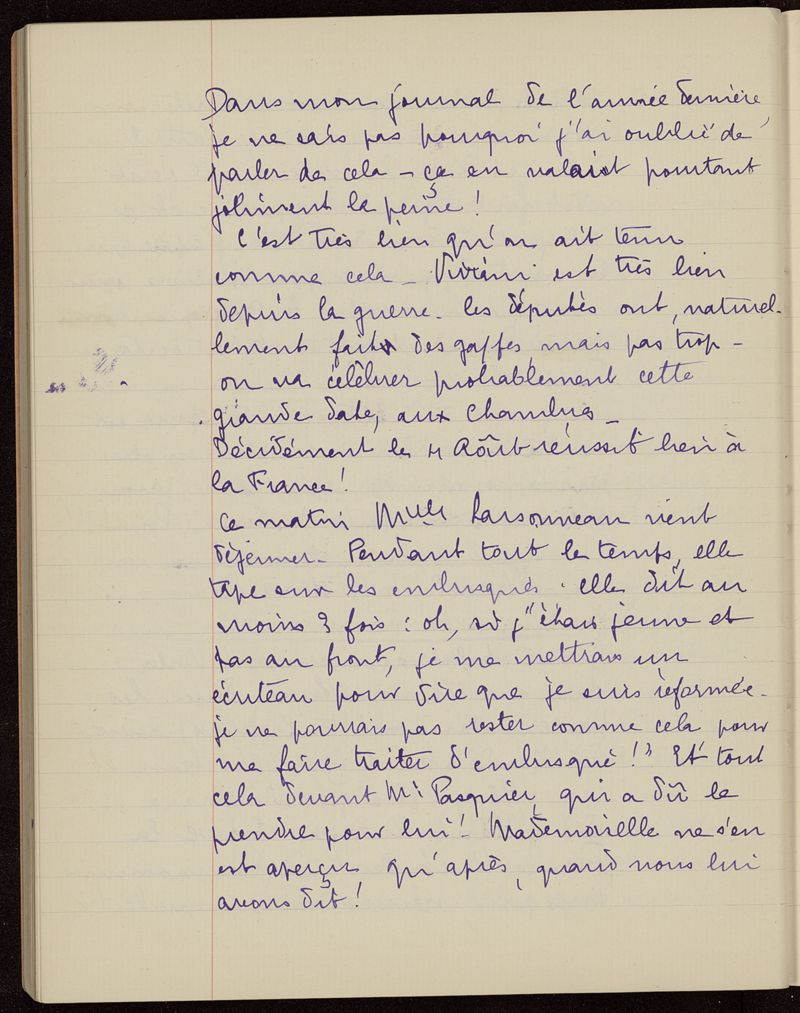 Dans mon journal de l'année dernière
je ne sais pas pourquoi j'ai oublié de
parler de cela – ça en valait pourtant
joliment la peine !
C'est très bien qu'on ait tenu
comme cela – Viviani est très bien
depuis la guerre. les députés ont, naturel-
lement fait des gaffes, mais pas trop –
on va célébrer probablement cette
grande date, aux Chambres –
Décidément le 4 Août réussit bien à
la France !
Ce matin Melle Larsonneau vient
déjeuner. Pendant tout le temps, elle
tape sur les embusqués. elle dit au
moins 3 fois : oh, si j'étais jeune et
pas au front, je me mettrais un
écriteau pour dire que je suis réformée.
je ne pourrais pas rester comme cela pour
me faire traiter d'embusqué !" Et tout
cela devant Mr Pasquier, qui a dû le
prendre pour lui ! Mademoiselle ne s'en
est aperçu qu'après, quand nous lui
avons dit !